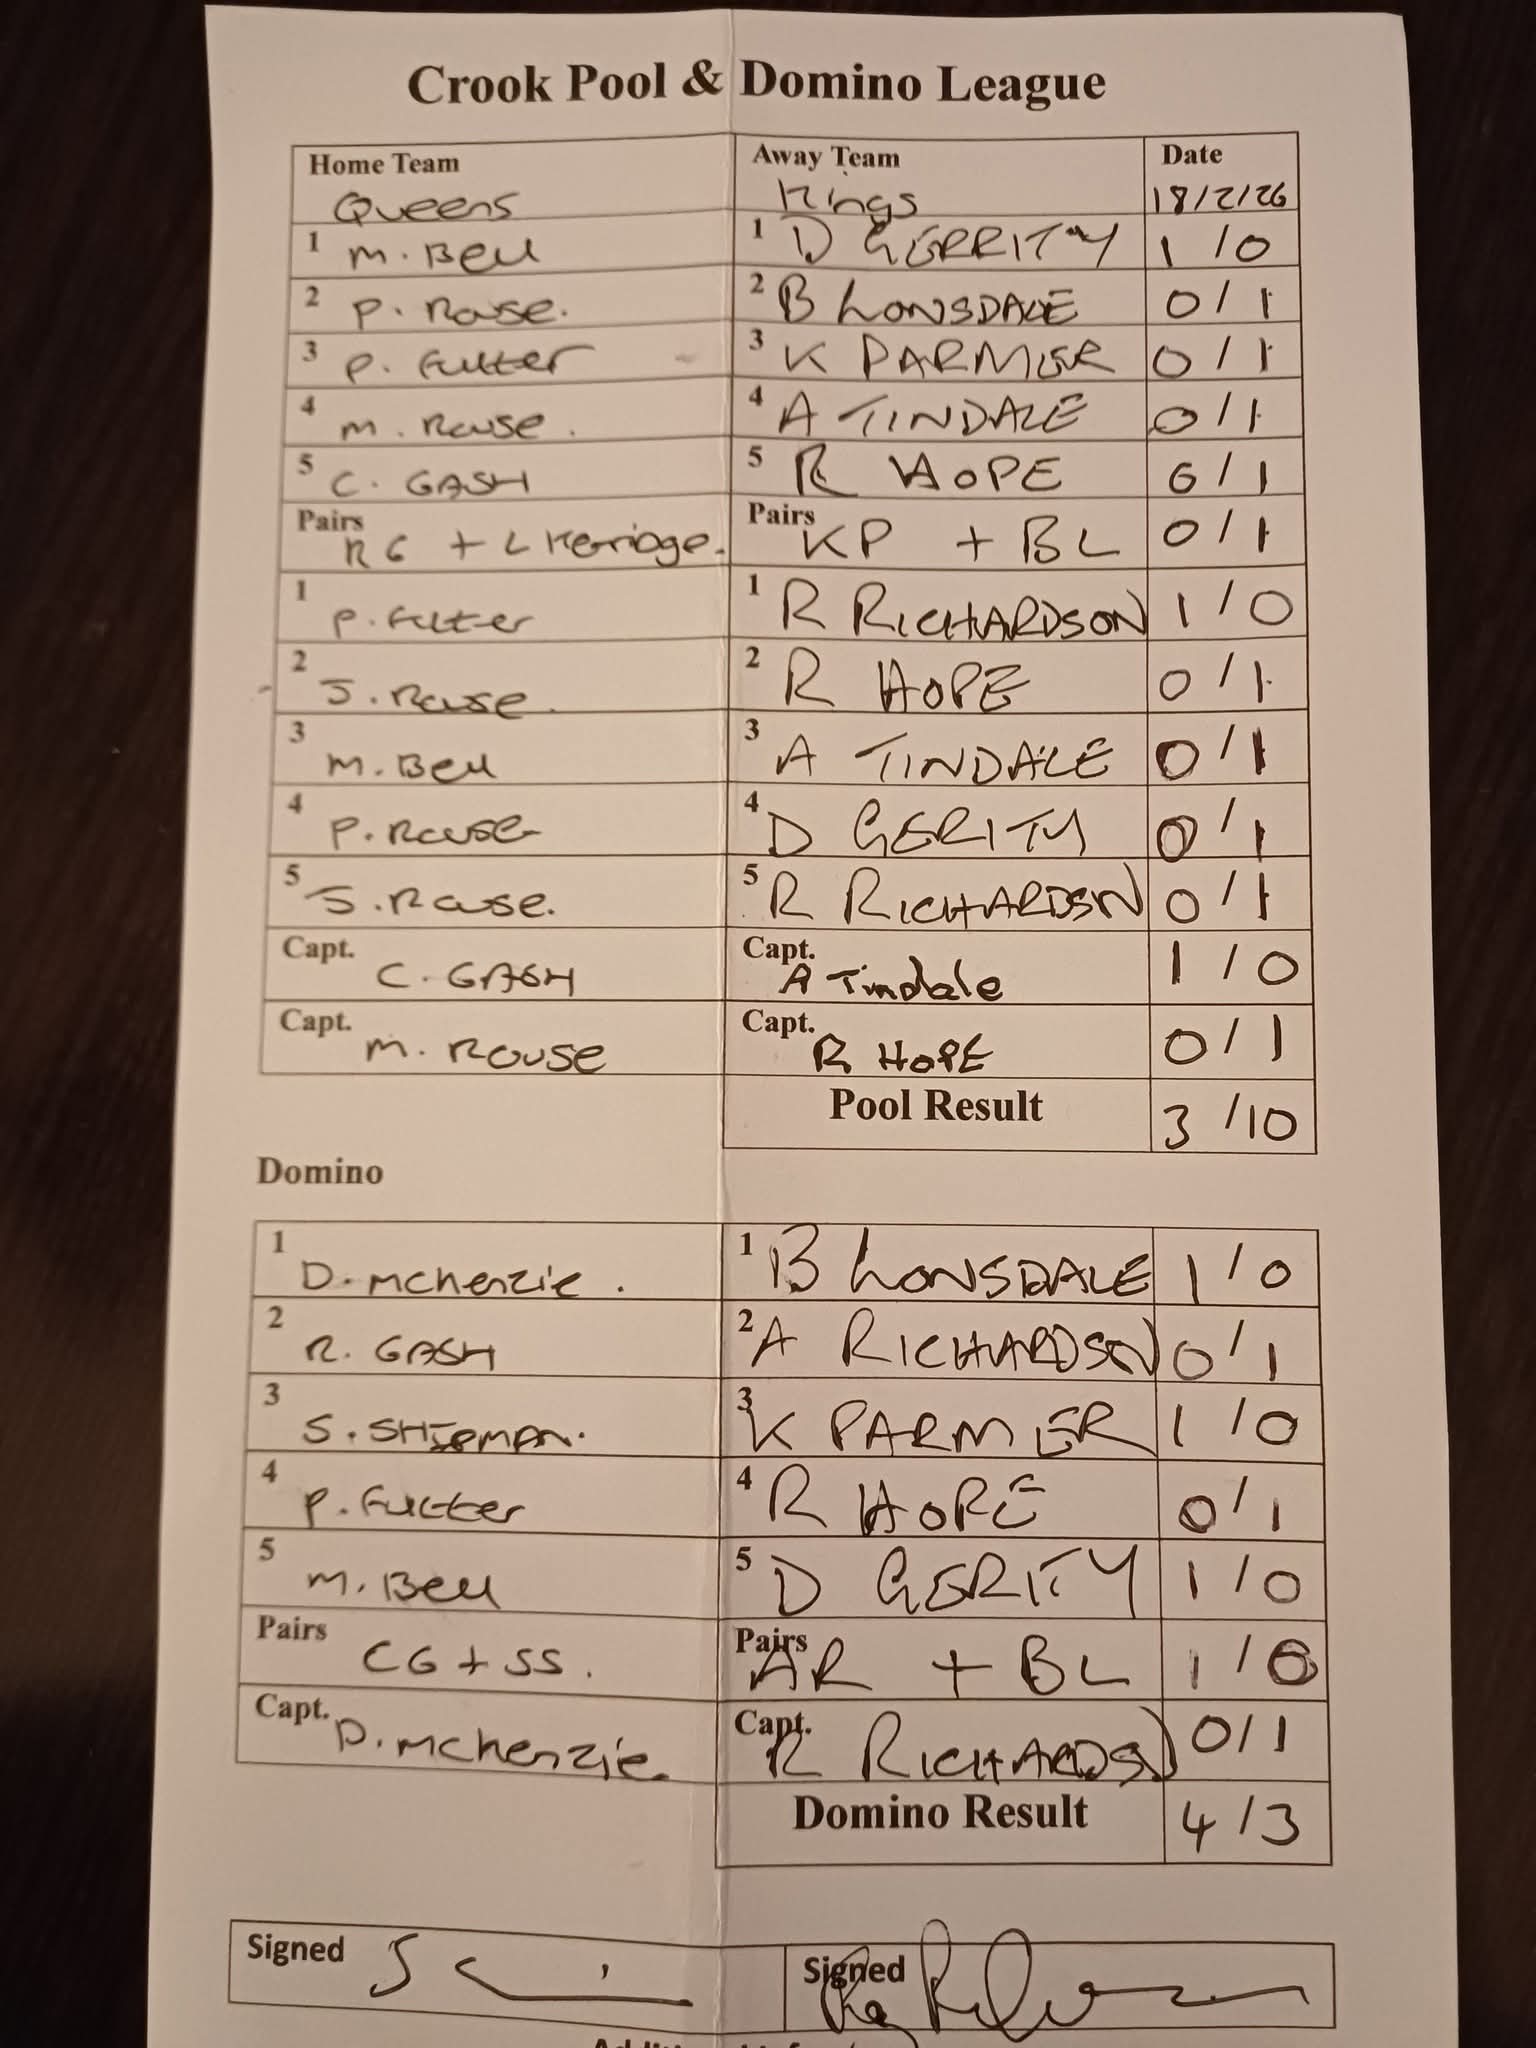 Crook Pool & Domino League
Home Team Away Team Date
Queens Kings 18/2/26
1 M. Bell 1 D GERRITY 1/0
2 P. Rouse. 2 B LONSDALE 0/1
3 P. Futter 3 K PARMER 0/1
4 M. Rouse. 4 A TINDALE 0/1
5 C. GASH 5 R HOPE 0/1
Pairs RG + L Kerridge. Pairs KP + BL 0/1
1 P. Futter 1 R RICHARDSON 1/0
2 J. Rouse. 2 R HOPE 0/1
3 M. Bell 3 A TINDALE 0/1
4 P. Rouse 4 D GERITY 0/1
5 J. Rouse. 5 R RICHARDSN 0/1
Capt. C. GASH Capt. A Tindale 1/0
Capt. M. ROUSE Capt. R HOPE 0/1
Pool Result 3/10
Domino
1 D. McKenzie. 1 B LONSDALE 1/0
2 R. GASH 2 A RICHARDSON 0/1
3 S. SHIPMAN. 3 K PARMER 1/0
4 P. Futter 4 R HOPE 0/1
5 M. Bell 5 D GERITY 1/0
Pairs CG + SS. Pairs AR + BL 1/0
Capt. D. McKenzie. Capt. R RICHARDSN 0/1
Domino Result 4/3
Signed Signed